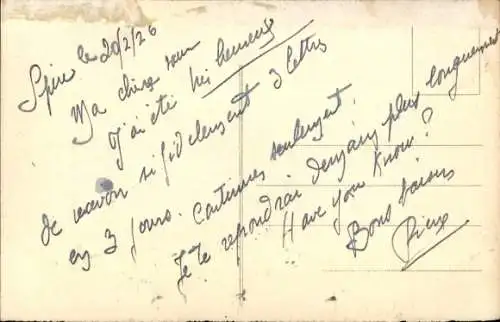 Spire le 20/2/26
Ma chère sœur
J'ai été très heureux
de recevoir si fidèlement 3 lettres
en 3 jours. Continues seulement.
Je te répondrai demain plus longuement
Have you know?
Bons baisers
Pierre